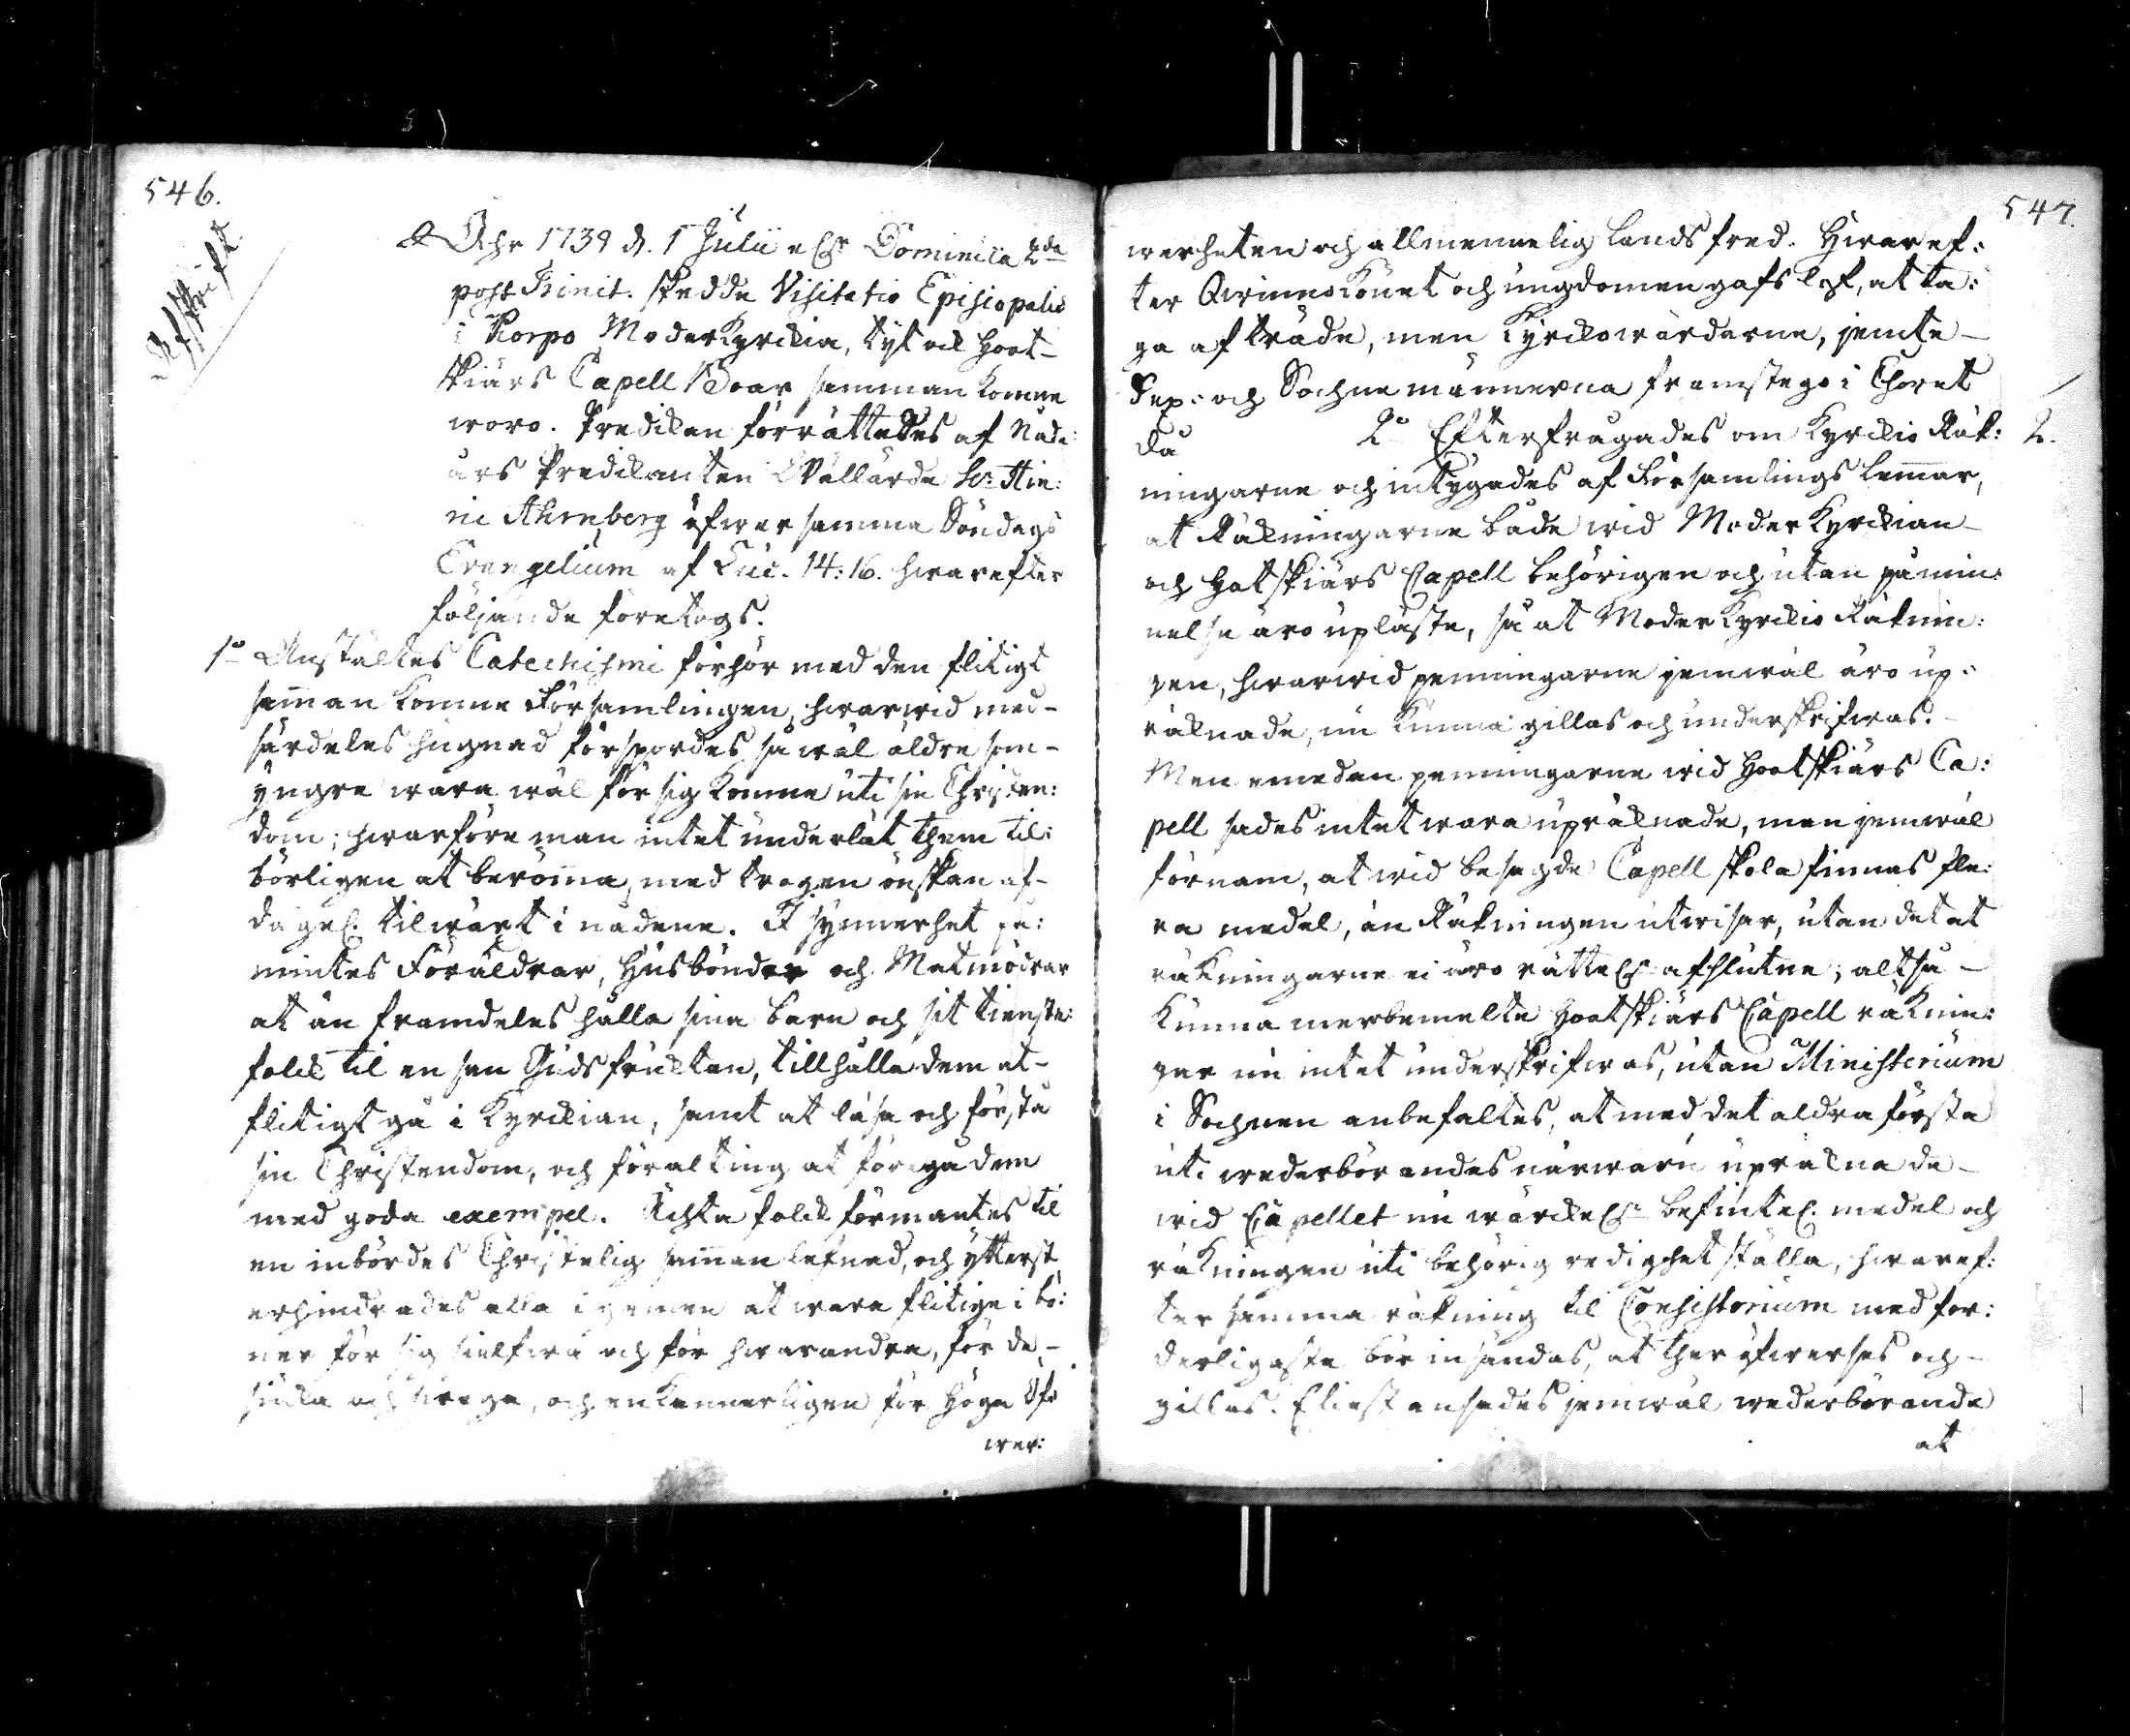 546.
Afskrift
Åhr 1739 d. 1 Julii el:r Dominica 2da
post Trinit. skedde Visitatio Episcopalis
i Korpo Moderkyrckia, dyt ock Hout-
skiärs Capell Boar samman komne
woro. Predikan förrättades af Nåde-
års Predikanten Wällärde Hr: Hin:
ric Ahrnberg öfwer samma Söndags
Evangelium af Luc. 14: 16. hwarefter
följande företogs.
1o Anstältes Catechismi förhör med den flitigt
samman komne Församlingen, hwarwid med-
särdeles hugnad förspordes så wäl äldre som-
yngre wara wäl för sig komne uti sin Christen:
dom; hwarföre man intet underlät them til:
börligen at berömma, med trogen önskan af-
dagel. tilwäxt i nådene. I synnerhet på:
mintes Föräldrar, Husbönder och Matmödrar
at än framdeles hålla sina barn och sit tienste:
folck til en san Gudsfrucktan, tillhålla dem at-
flitigt gå i Kyrckian, samt at läsa och förstå
sin Christendom, och för alting at föregå dem
med goda exempel. Ächta folck förmantes til
en inbördes Christelig samman lefnad, och ytterst
erhindrades alla i gemen at wara flitige i bö:
ner för sig sielfwa och för hwarandra, för de-
siuka och swaga, och enkannerligen för höga Öf
wer:
547.
werheten och allmennelig Lands fred. Hwaref:
ter Qwinnokönet och ungdomen gafs lof, at ta:
ga afträde, men Kyrckowärdarne, jemte-
Sex: och Sochnemännerna framstego i Choret
då 2o Efterfrågades om Kyrckio Räk: 2.
ningarne och intygades af Församlings lemmar,
at Räkningarne både wid Moder Kyrckian-
och Hotskiärs Capell behörigen och utan påmin:
nelse äro upläste, så at Moder Kyrckio Räknin:
gen, hwarwid penningarne jemwäl äro up:
räknade, nu kunna gillas och underskrifwas.-
Men emedan penningarne wid Houtskiärs Ca:
pell sades intet wara upräknade, men jemwäl
förnam, at wid besagde Capell skola finnas fle:
ra medel, än Räkningen utwisar, utan det at
räkningarne ei äro rättel:n afslutne; altså-
kunna merbemelte Houtskiärs Capell räknin:
gar nu intet underskrifwas, utan Ministerium
i Sochnen anbefaltes, at med det aldraförsta
uti wederbörandes närwaru upräkna de-
wid Capellet nu wärckel:n befintel. medel och
räkningen uti behörig redighet ställa, hwaref:
ter samma räkning til Consistorium med for:
derligaste bör insändas, at ther öfwerses och-
gillas. Eliest ansades jemwäl wederbörande
at